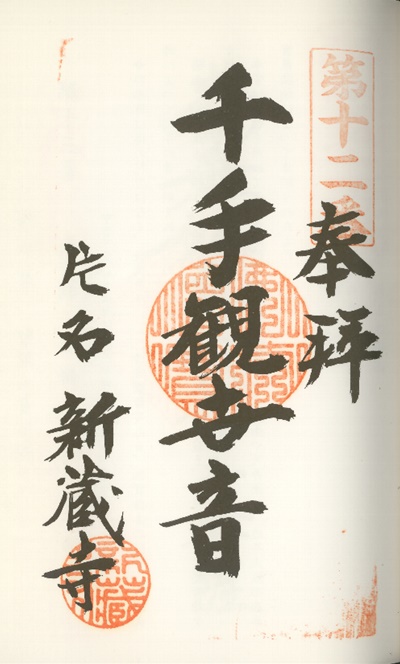 第十二番
奉拝
千手観世音
片名 新蔵寺